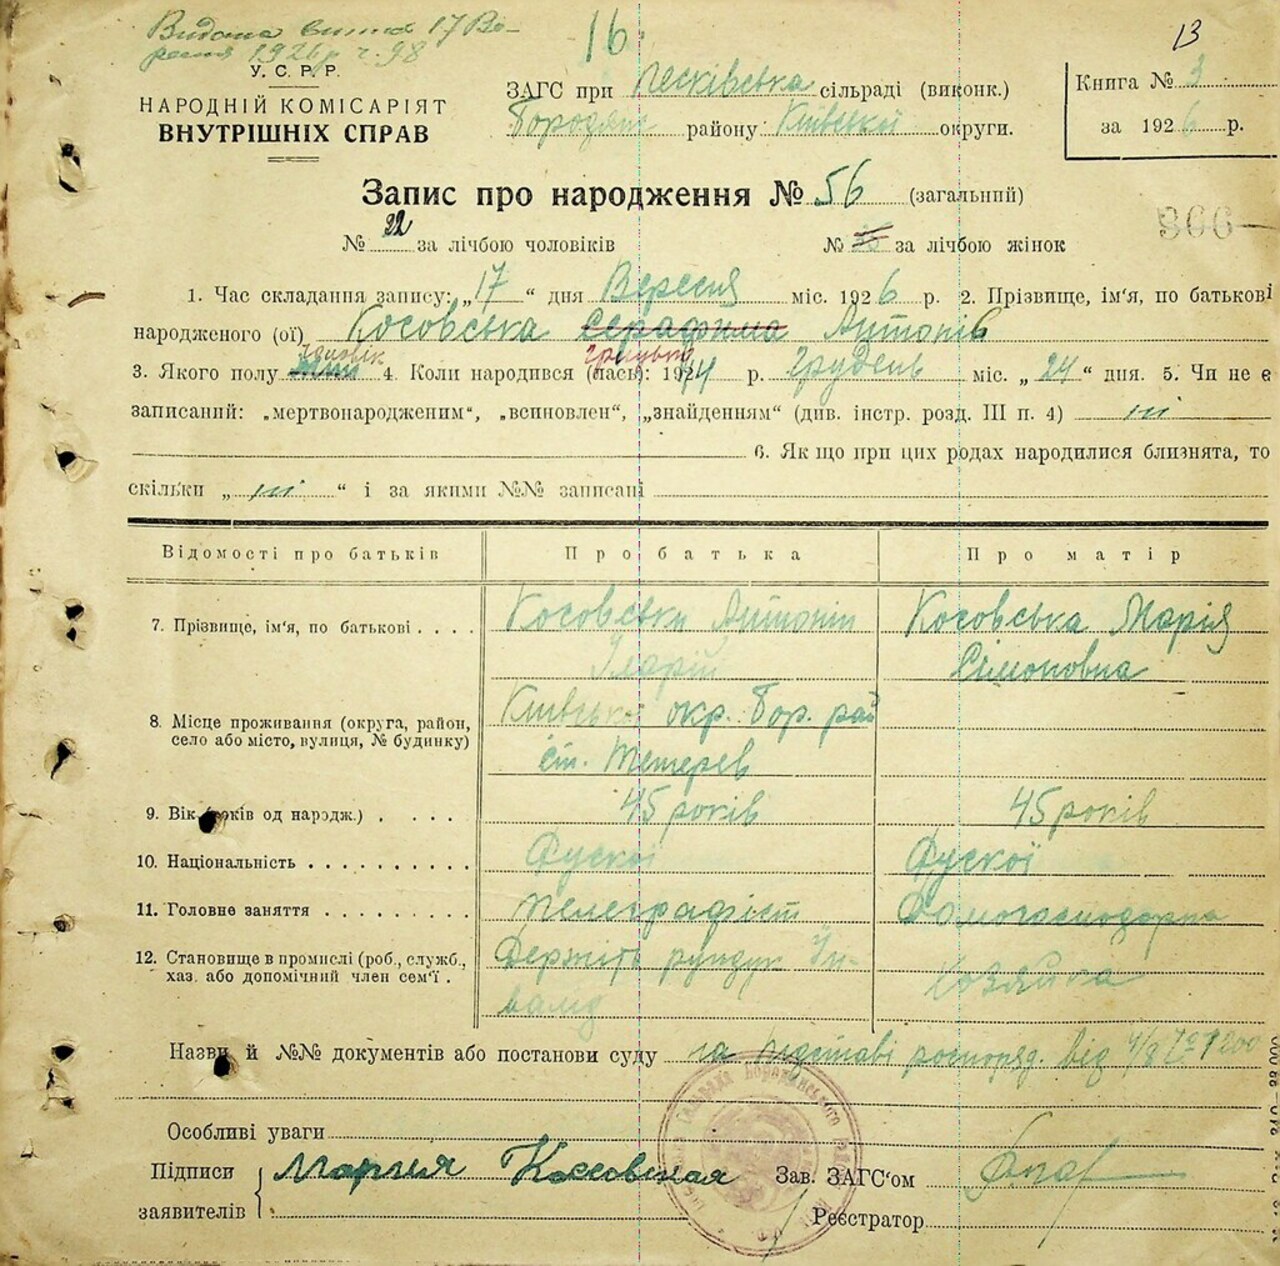 Видана витка 17 Ве-
ресня 1926 р ч. 98
16
13
У. С. Р. Р.
НАРОДНІЙ КОМІСАРІЯТ
ВНУТРІШНІХ СПРАВ
ЗАГС при Пєсківська сільраді (виконк.)
Бородян району Київської округи.
Книга № 3
за 1926 р.
Запис про народження № 56 (загальний)
№ 22 за лічбою чоловіків № за лічбою жінок
366
1. Час складання запису: „17“ дня Вересня міс. 1926 р. 2. Прізвище, ім'я, по батькові
народженого (ої) Косовська Серафима Антонів
Чоловік Грицько
3. Якого полу 4. Коли народився (лась): 1924 р. Грудень міс. „24“ дня. 5. Чи не є
записаний: „мертвонародженим“, „всиновлен“, „знайденням“ (див. інстр. розд. III п. 4) ні
6. Як що при цих родах народилися близнята, то
скільки „ні“ і за якими №№ записані
Відомості про батьків Про батька Про матір
7. Прізвище, ім'я, по батькові Косовськи Антонін Косовська Марія
Іларій Сімоновна
8. Місце проживання (округа, район, село або місто, вулиця, № будинку) Київська окр. Бор. рай
ст. Тетерев
9. Вік (років од народж.) 45 років 45 років
10. Національність Руської Руської
11. Головне заняття телеграфіст Домогосподарка
12. Становище в промислі (роб., служб., хаз. або допомічний член сем'ї. Держить рундук Ін-
валід Хозяйка
Назви й №№ документів або постанови суду на підставі розпоряд. від 4/8 № 1200
Особливі уваги
Підписи заявителів Мария Коссовская Зав. ЗАГС'ом
Реєстратор